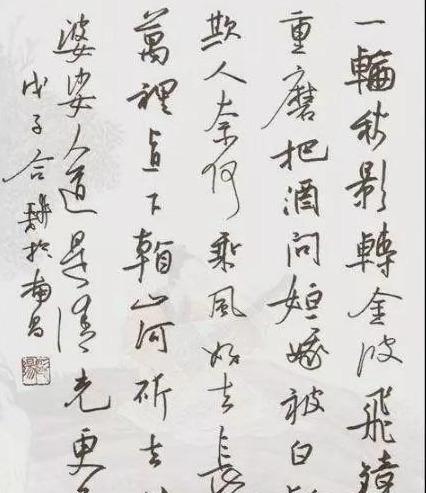 一輪秋影轉金波飛鏡
重磨把酒問姮娥被白
欺人奈何乘風好去長
萬裡直下看山河斫去
婆娑人道是清光更
戊子合於南昌